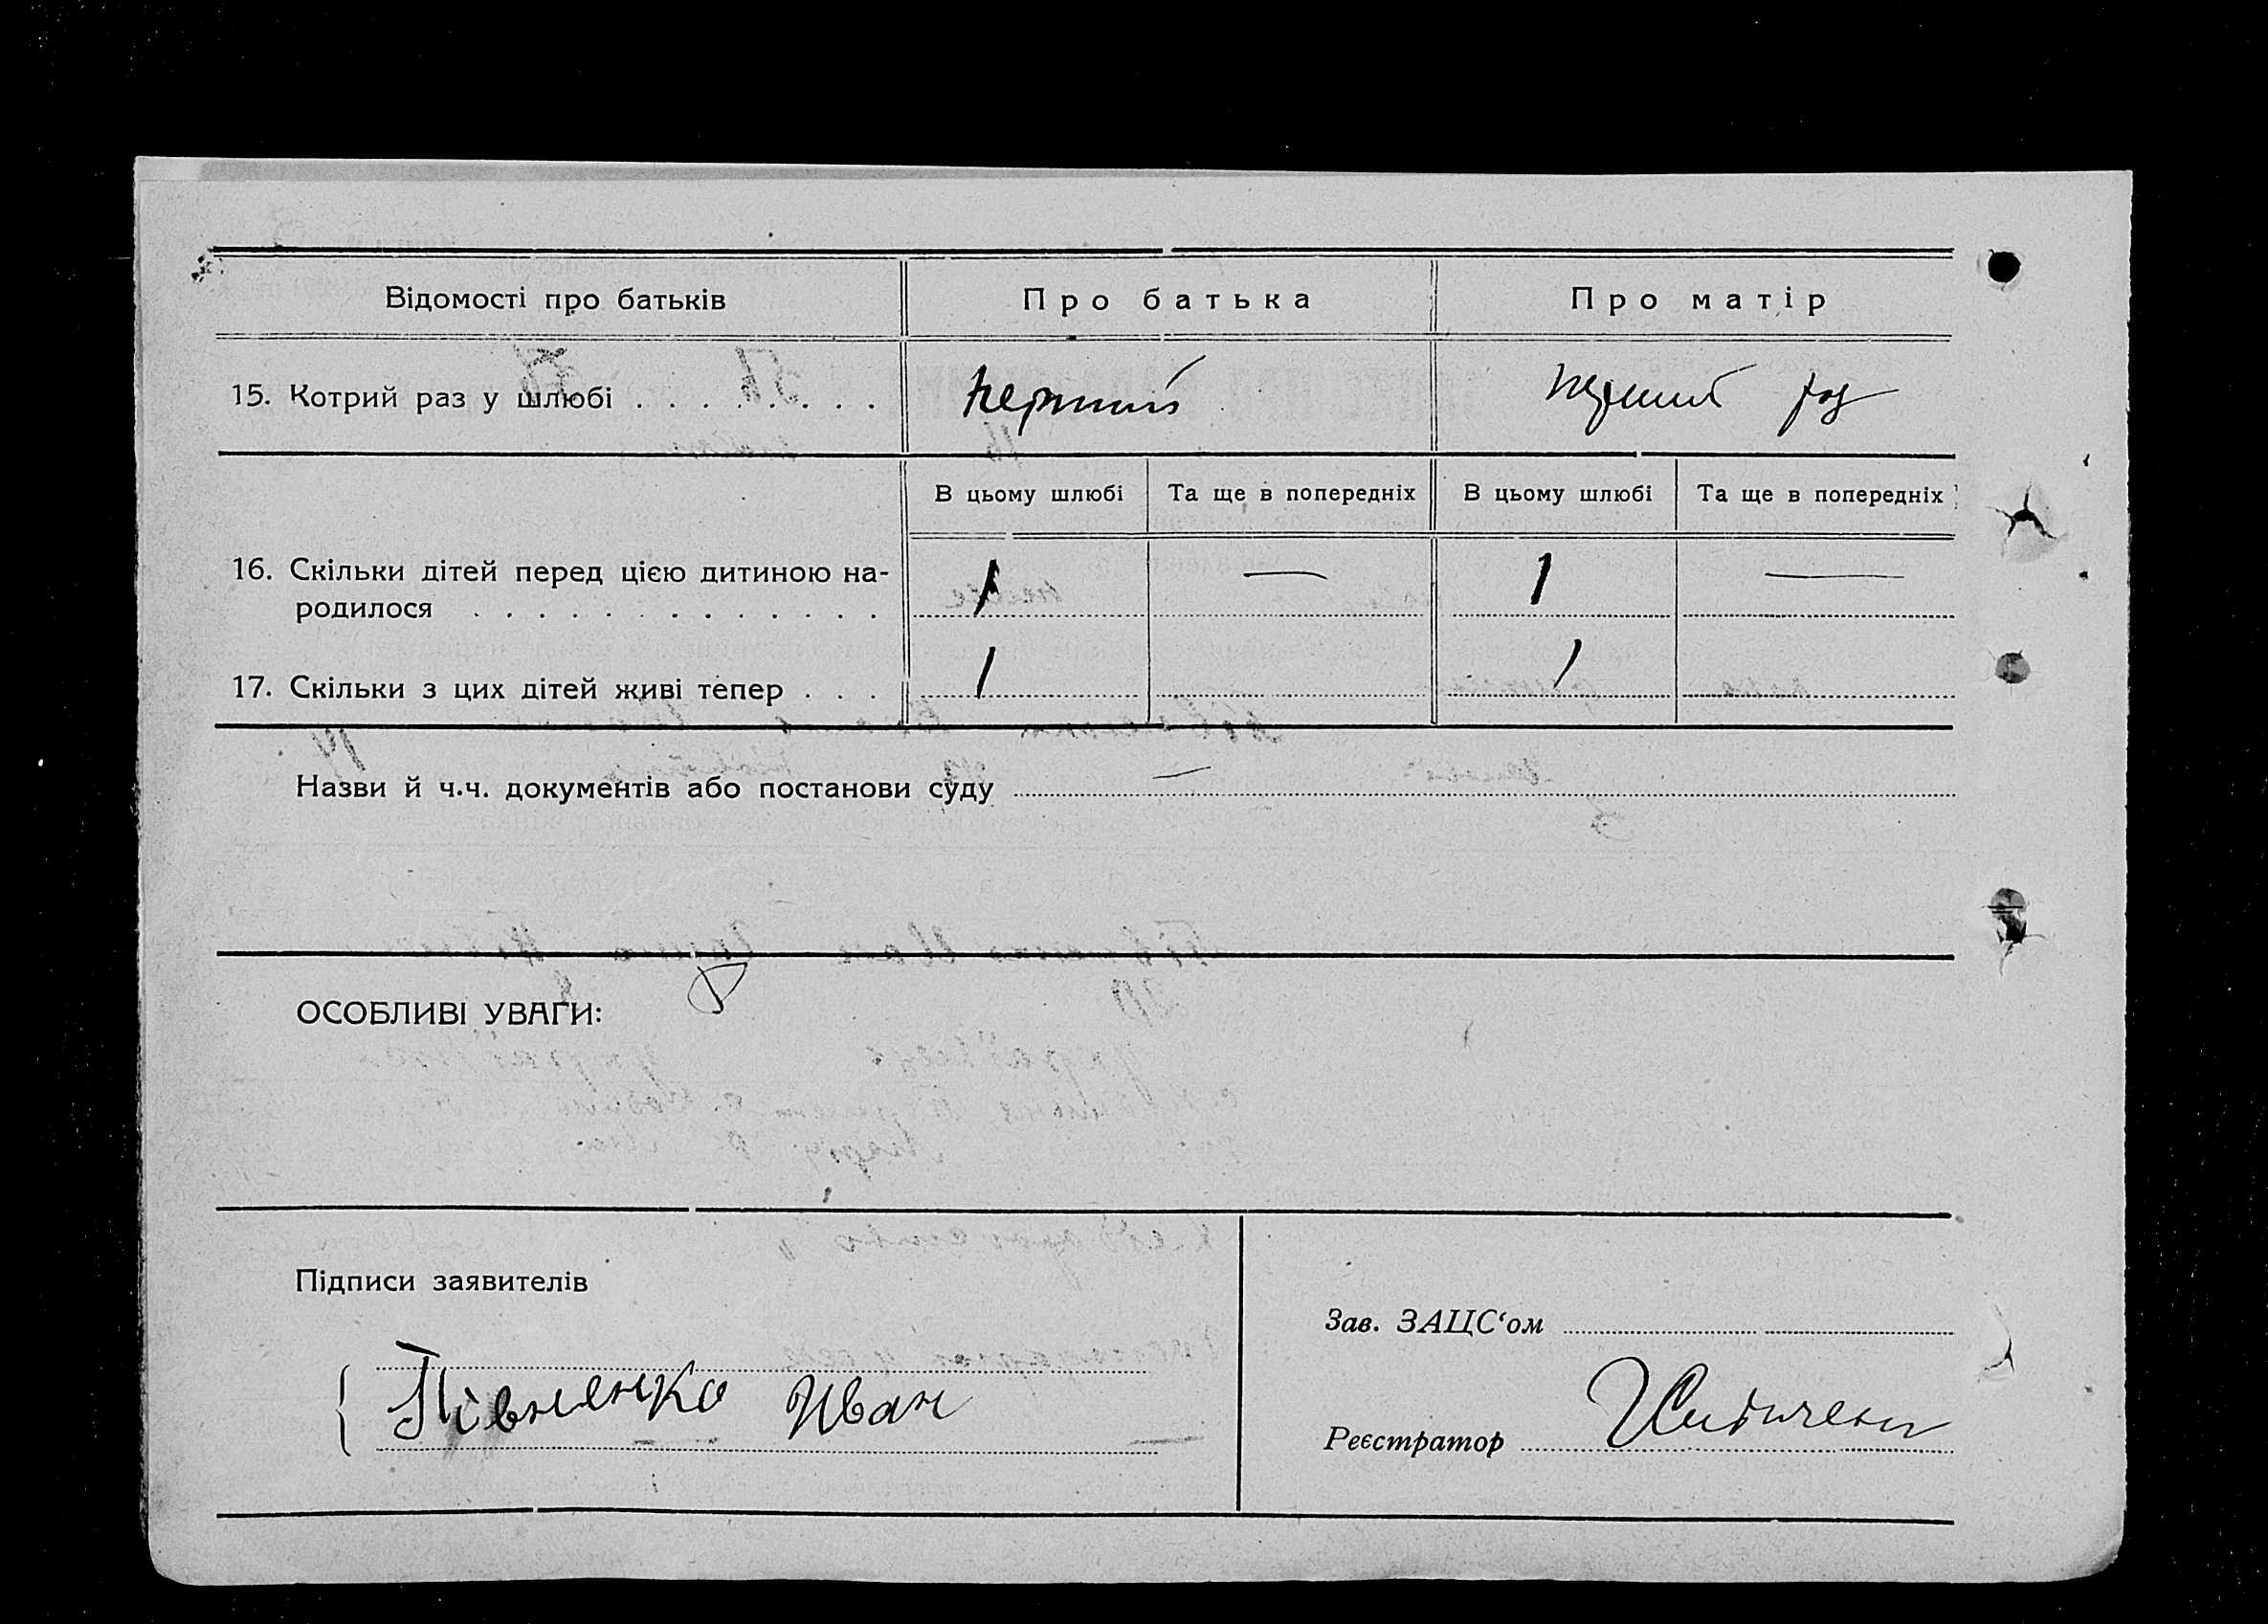 Відомості про батьків
Про батька
Про матір
15. Котрий раз у шлюбі . . . . . . . .
перший
перший раз
В цьому шлюбі
Та ще в попередніх
В цьому шлюбі
Та ще в попередніх
16. Скільки дітей перед цією дитиною на-
родилося . . . . . . . . . . . . .
1
—
1
—
17. Скільки з цих дітей живі тепер . . .
1
1
Назви й ч.ч. документів або постанови суду
—
ОСОБЛИВІ УВАГИ:
Підписи заявителів
Півненко Иван
Зав. ЗАЦС‘ом
Реєстратор